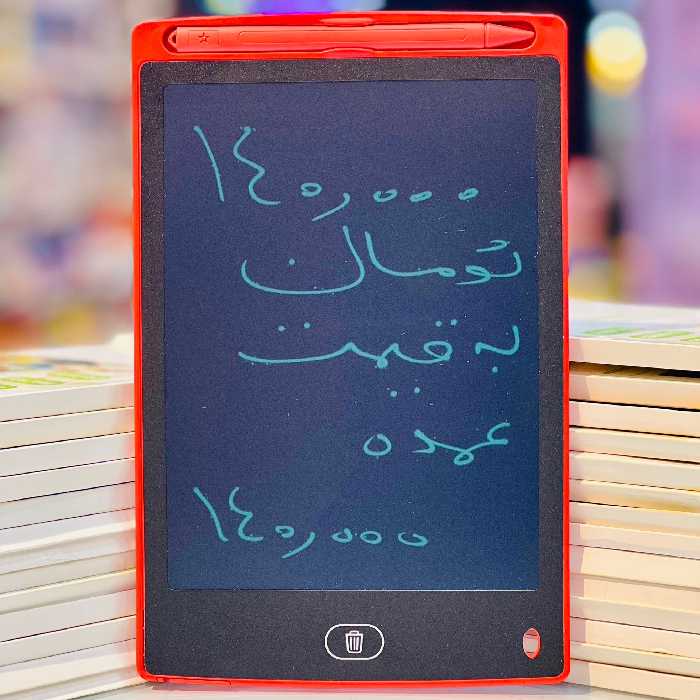 ۱۴۰,۰۰۰
تومان
به قیمت
عمده
۱۴۰,۰۰۰